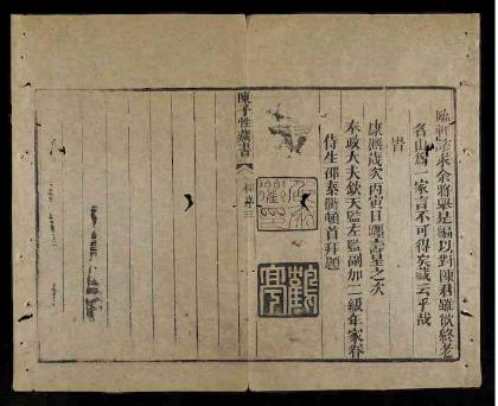 臨軒諮求余將舉是編以對陳君雖欲終老
名山爲一家言不可得矣藏云乎哉
旹
康熙歲次丙寅日躔壽星之次
奉政大夫欽天監左監副加二級年家眷
侍生邵泰衢頓首拜題
鶴亭
陳子性藏書
序 三